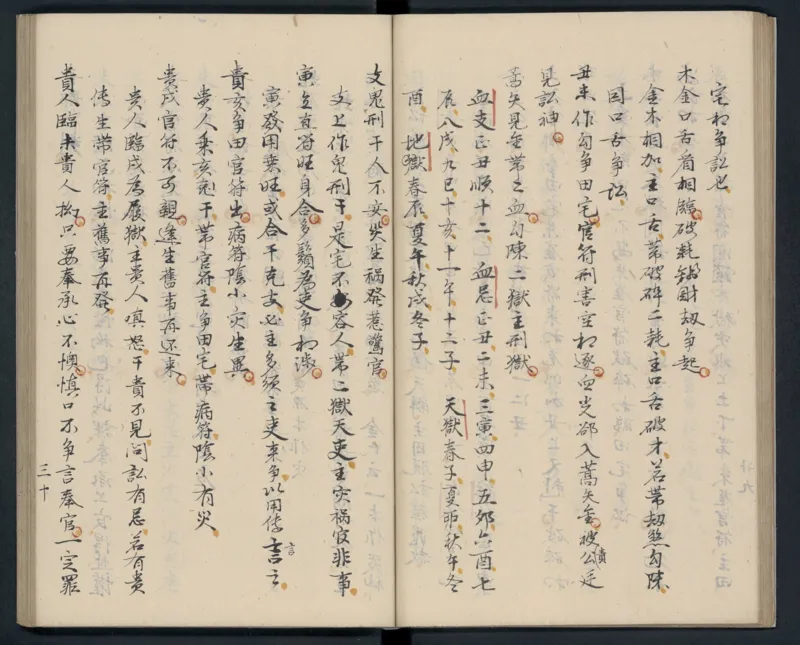 宅相争訟也
木金口舌看相臨破耗錢財劫争起
金木相加主口舌帯破碎二耗主口舌破才若帯劫煞勾陳
因口舌争訟
丑未作勾争田宅官符刑害空相逐血光部入蒿矢金被公庭
見訟神
蒿矢見金帯之血勾陳二獄主刑獄
血支正丑順十二 血忌正丑二未三寅四申五夘六酉七
辰八戌九巳十亥十一午十二子 天獄春子夏夘秋午冬
酉 地獄春辰夏午秋戌冬子
支鬼刑干人不安災生禍発惹驚官
支上作鬼刑干是宅不容人帯二獄天吏主灾禍官非事
寅立直符旺身合多鬚為吏争相涉
寅発用乗旺或合干克支必主多须之吏来争以用傳言之
貴亥争田官符出病符陰小灾生異
貴人乗亥剋干帯官符主争田宅帯病符陰小有災
貴戌官符不可親逢生舊事再还来
貴人臨戌為履獄主貴人嗔怒干貴不見问訟有忌若有貴
傳生帯官符主舊事再発
貴人臨未貴人 只要奉承心不懊慎口不争言奉官一定罪
三十